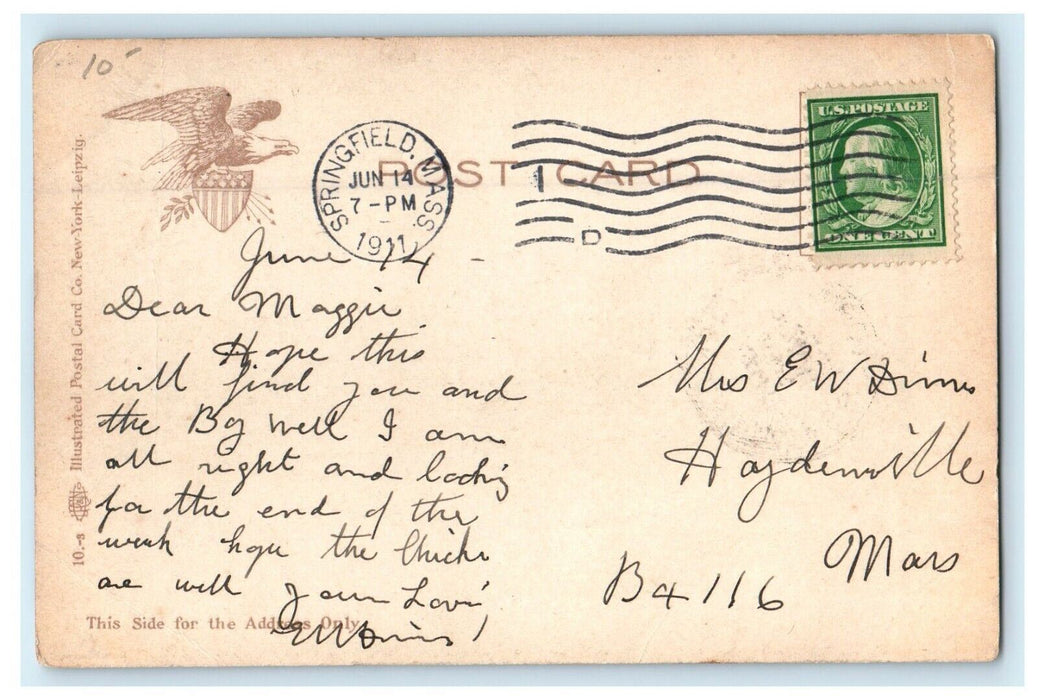 10
U.S. POSTAGE
ONE CENT
SPRINGFIELD, MASS.
JUN 14
7-PM
1911
1
D
POST CARD
June 14 -
Dear Maggie
Hope this
will find you and
the Boy well I am
all right and looking
for the end of the
week hope the Chicks
are well Your Lovi
EW
Mrs E W
Haydenville
Mass
Bx 116
This Side for the Address Only.
10.-s Illustrated Postal Card Co. New-York-Leipzig.